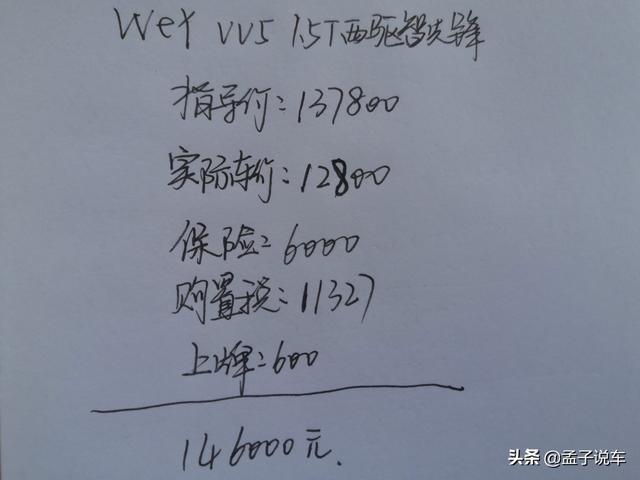 Wey VV5 1.5T两驱智先锋
指导价:137800
实际车价:12800
保险:6000
购置税:11327
上牌:600
146000元.
头条 @孟子说车